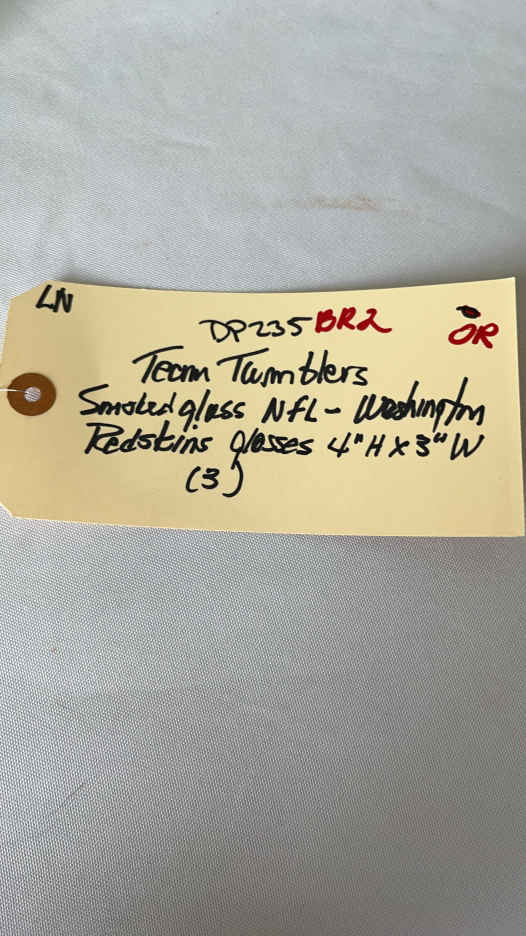 LN
DP235 BR2 OR
Team Tumblers
Smoked glass NFL - Washington
Redskins glasses 4" H x 3" W
(3)